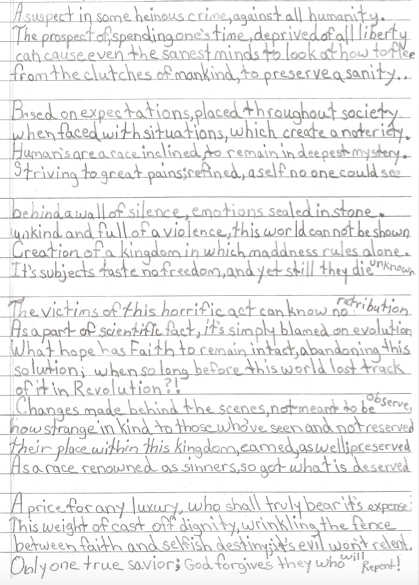 A suspect in some heinous crime, against all humanity.
The prospect of, spending one's time, deprived of all liberty
can cause even the sanest minds to look at how to flee
from the clutches of mankind, to preserve a sanity..
Based on expectations, placed throughout society
when faced with situations, which create a noteriety.
Human's are a race inclined, to remain in deepest mystery.
Striving to great pains; refined, a self no one could see
behind a wall of silence, emotions sealed in stone.
unkind and full of a violence, this world can not be shown
Creation of a kingdom in which maddness rules alone.
It's subjects taste no freedom, and yet still they die unknown
The victims of this horrific act can know no retribution
As a part of scientific fact, it's simply blamed on evolution
What hope has Faith to remain intact, abandoning this
solution; when so long before this world lost track
of it in Revolution?!
Changes made behind the scenes, not meant to be observe,
how strange in kind to those who've seen and not reserved
their place within this kingdom, earned, as well; preserved
As a race renowned as sinners, so got what is deserved
A price for any luxury, who shall truly bear it's expense:
This weight of cast off dignity, wrinkling the fence
between faith and selfish destiny; it's evil won't relent.
Only one true savior; God forgives they who will Repent!